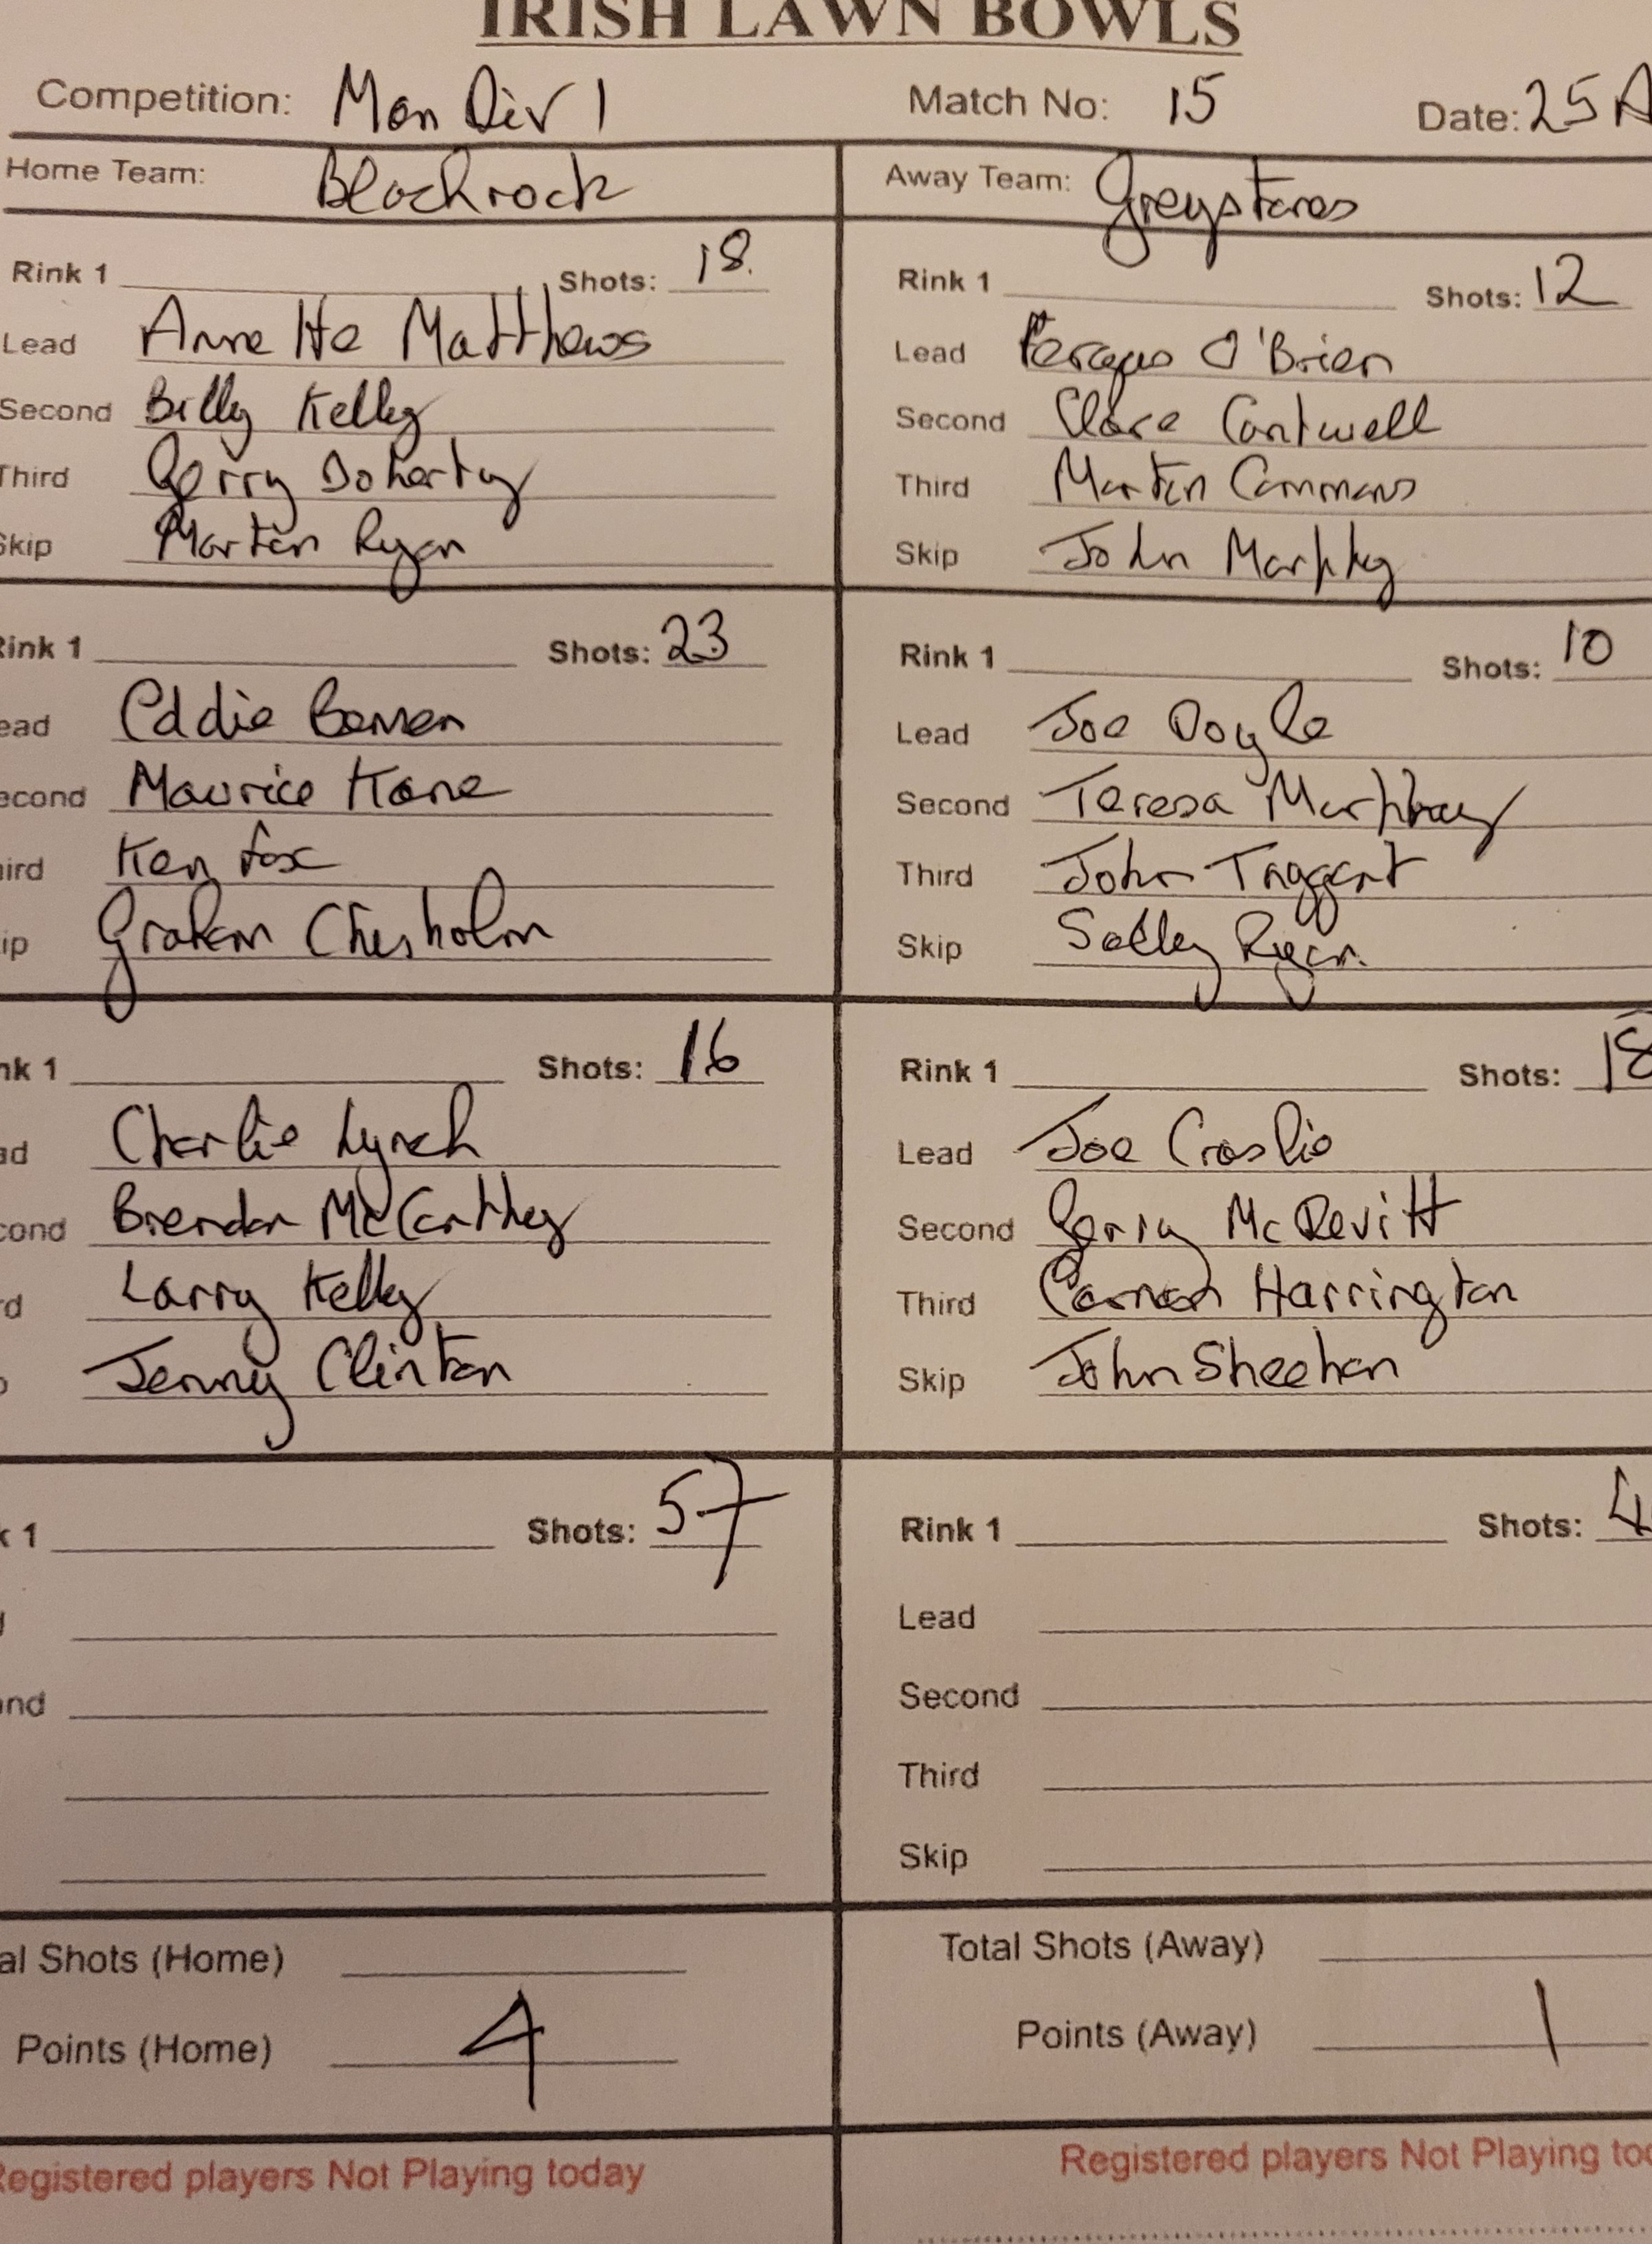 IRISH LAWN BOWLS
Competition: Mon Div 1 Match No: 15 Date: 25 A
Home Team: Blackrock
Away Team: Greystones
Rink 1 Shots: 18
Lead Annette Matthews
Second Billy Kelly
Third Gerry Doherty
Skip Martin Ryan
Rink 1 Shots: 12
Lead Fergus O'Brien
Second Clare Cantwell
Third Martin Commons
Skip John Murphy
Rink 1 Shots: 23
ead Eddie
econd Maurice Kane
ird Ken Fox
ip Graham Chesholm
Rink 1 Shots: 10
Lead Joe Doyle
Second Teresa Murphy
Third John Taggart
Skip Sally Ryan
nk 1 Shots: 16
ad Charlie Lynch
cond Brendan McCarthy
rd Larry Kelly
p Jenny Clinton
Rink 1 Shots: 18
Lead Joe Croslie
Second Gerry McDevitt
Third Harrington
Skip John Sheehan
k 1 Shots: 57
nd
Rink 1 Shots: 4
Lead
Second
Third
Skip
al Shots (Home)
Points (Home) 4
Total Shots (Away)
Points (Away) 1
Registered players Not Playing today
Registered players Not Playing too